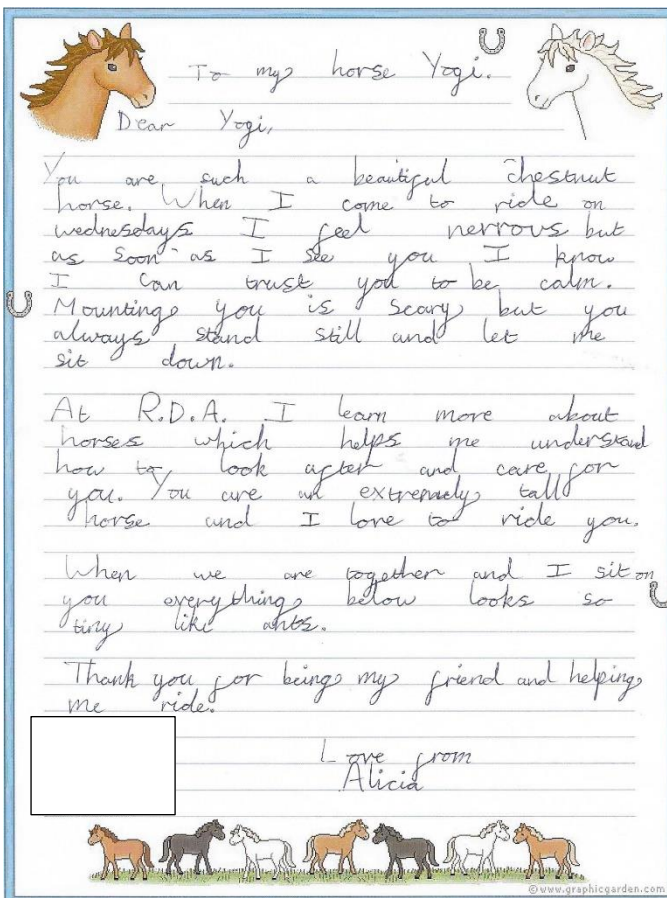 To my horse Yogi.
Dear Yogi,
You are such a beautiful chestnut
horse. When I come to ride on
wednesdays I feel nerrous but
as soon as I see you I know
I can trust you to be calm.
Mounting you is scary but you
always stand still and let me
sit down.
At R.D.A. I learn more about
horses which helps me understand
how to look after and care for
you. You are an extremely tall
horse and I love to ride you.
When we are together and I sit on
you everything below looks so
tiny like ants.
Thank you for being my friend and helping
me ride.
Love from
Alicia
©www.graphicgarden.com